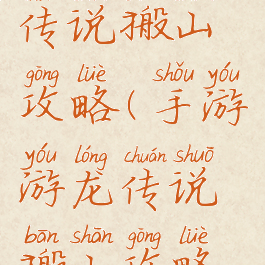 传说搬山
gōng lüè shǒu yóu
攻略(手游
yóu lóng chuán shuō
游龙传说
bān shān gōng lüè
搬山攻略